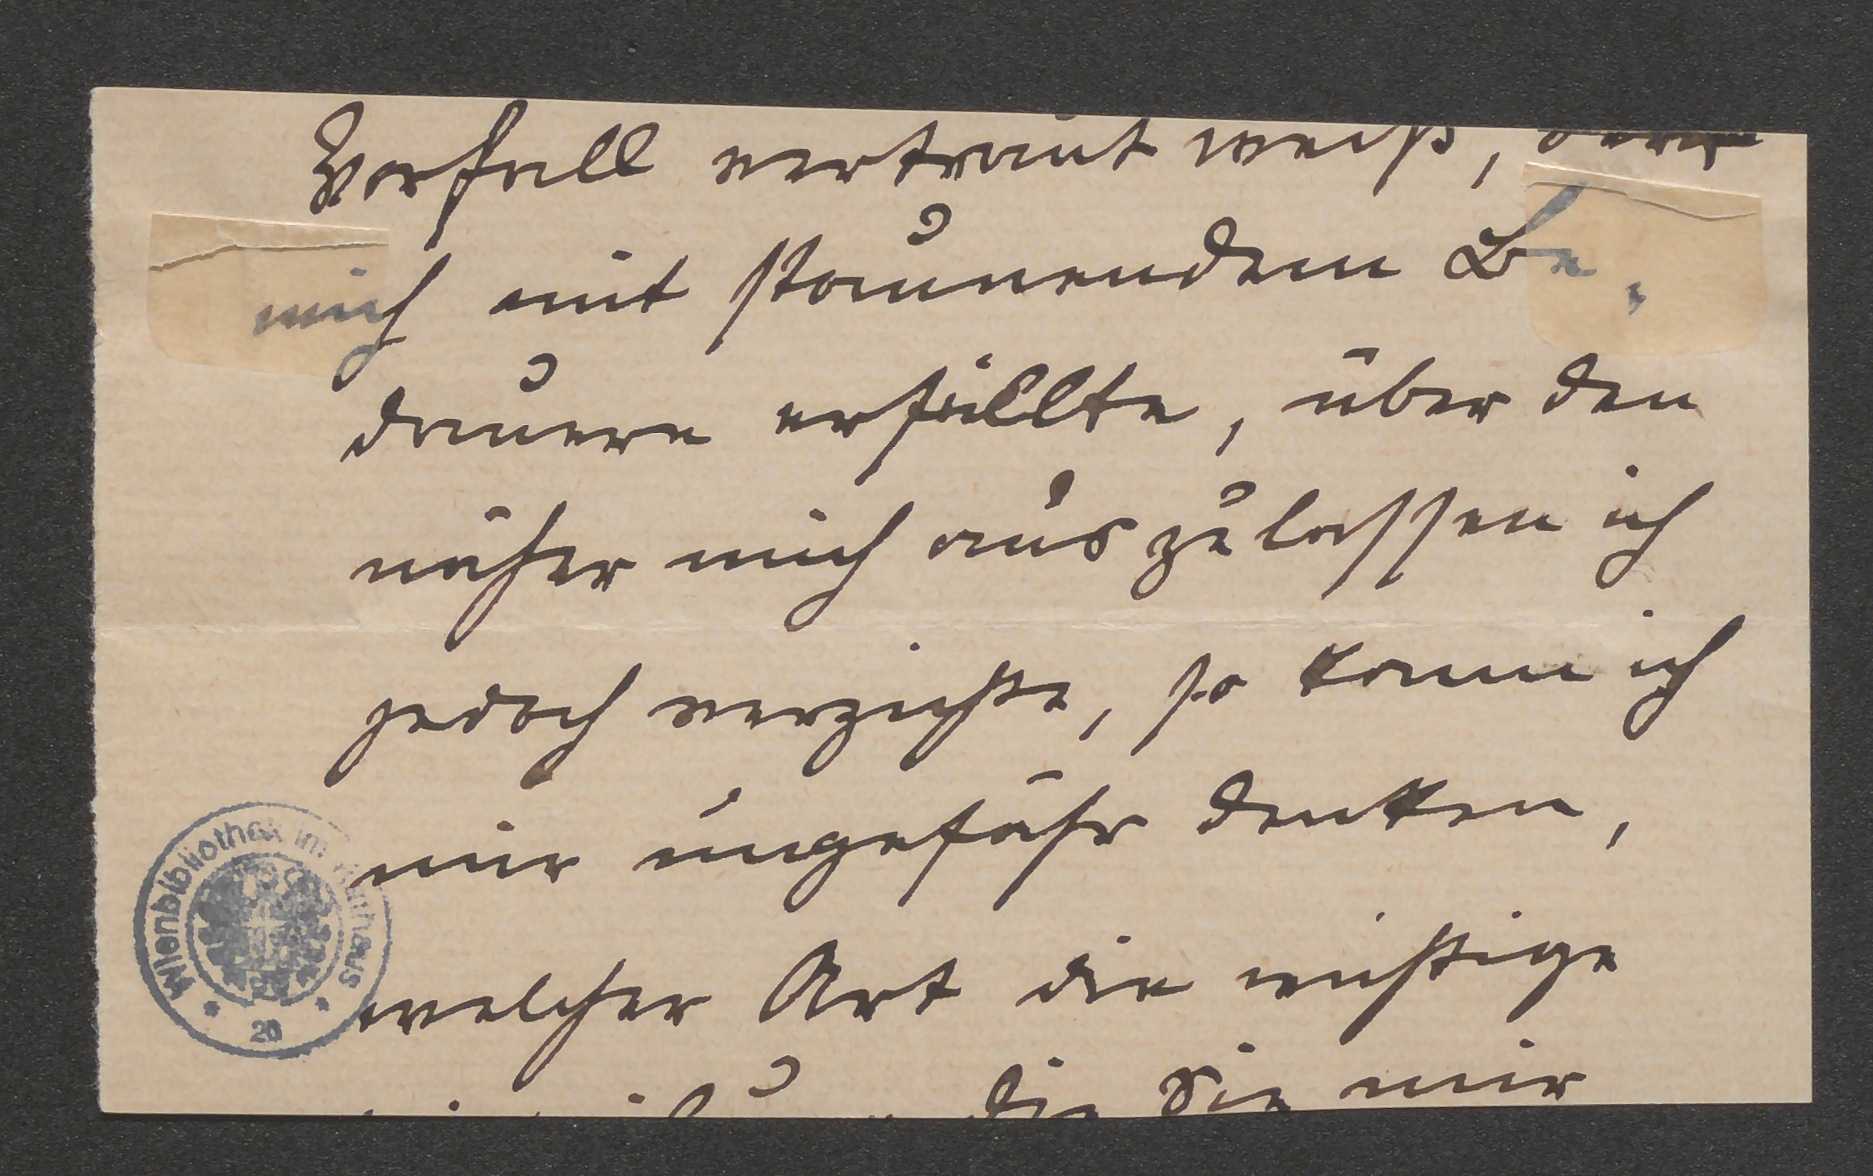 Vorfall vertraut weiß, der
mich mit staunendem Be-
dauern erfüllte, über den
näher mich auszulassen ich
jedoch verzichte, so kann ich
mir ungefähr denken,
welcher Art die wichtige
die Sie mir
Wienbibliothek im Rathaus
20